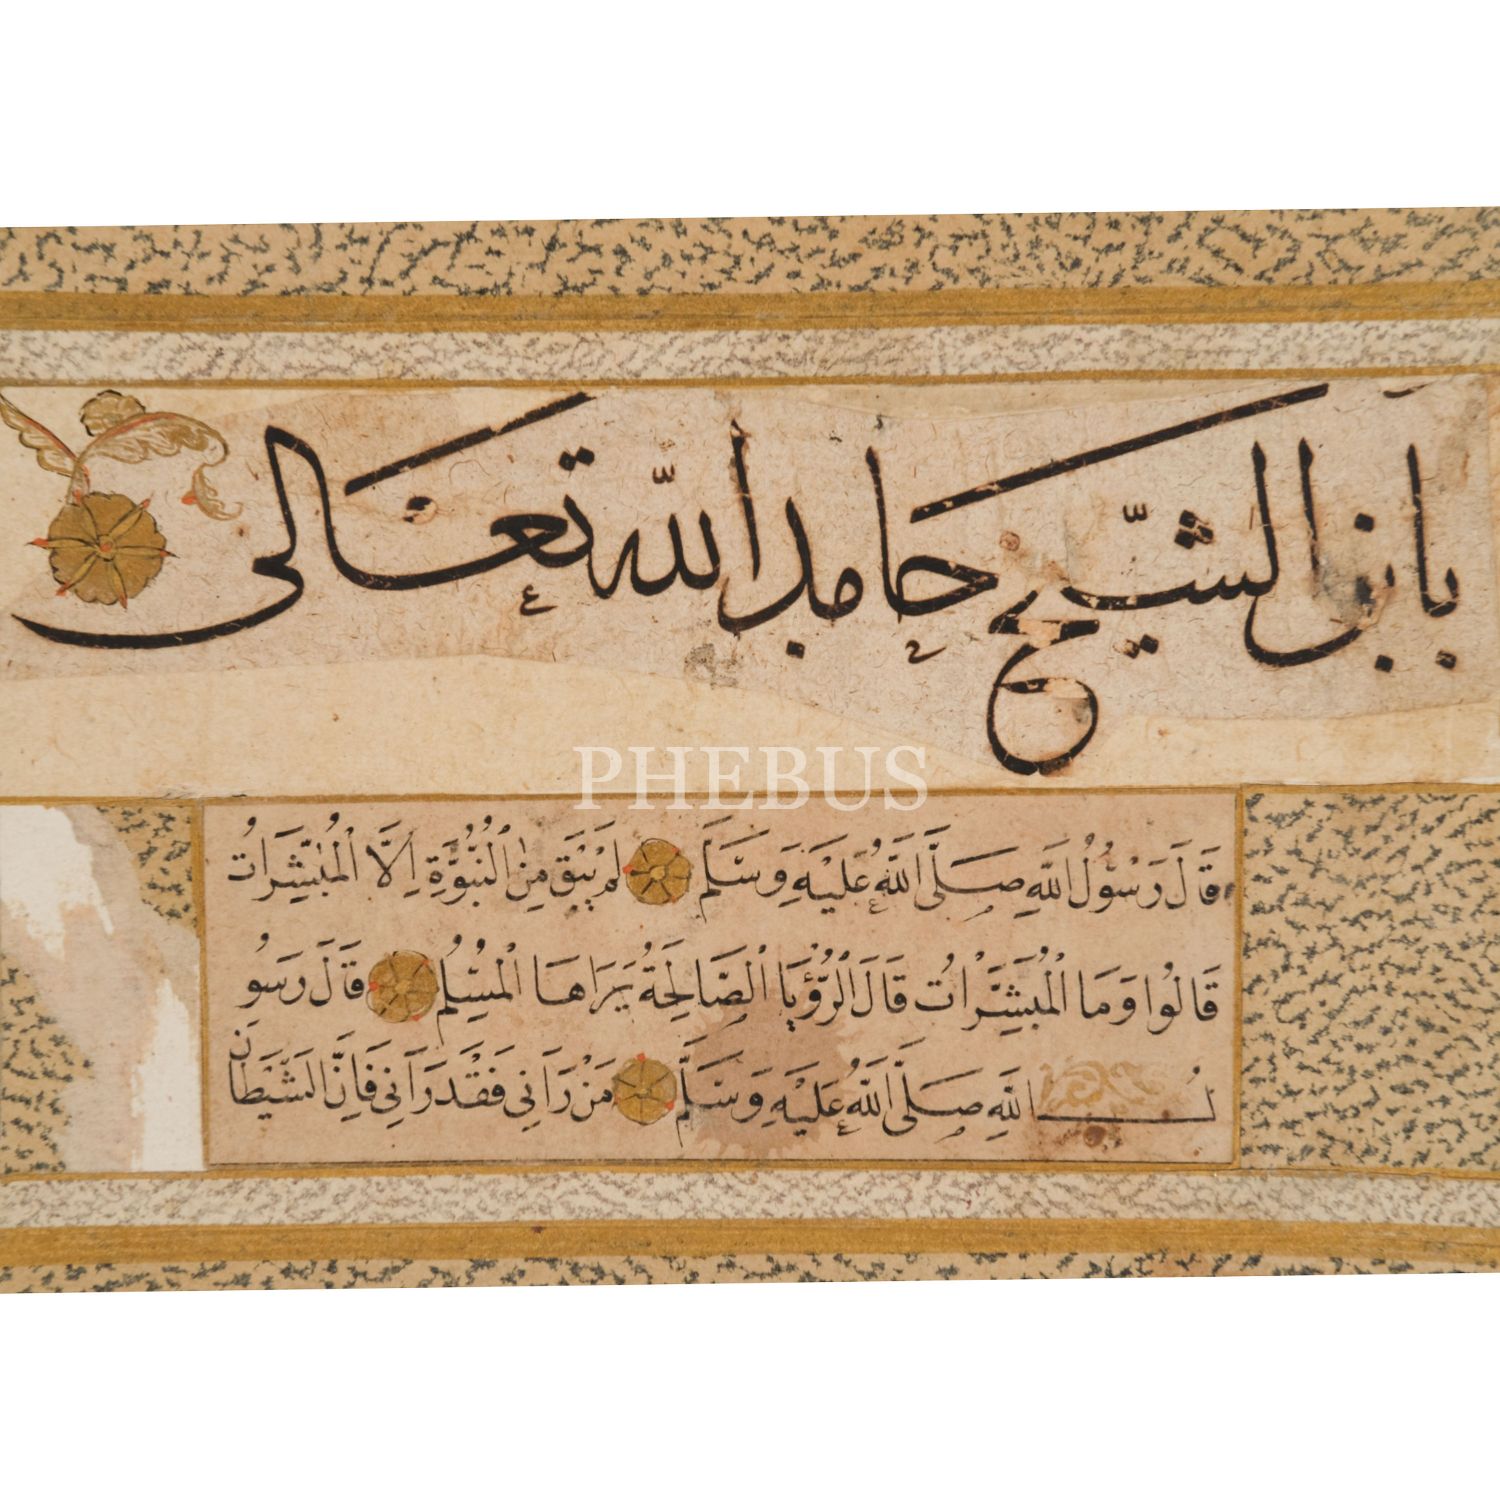 بابن الشيخ حامدا لله تعالى
PHEBUS
قَالَ رَسُولُ اللَّهِ صَلَّى اللَّهُ عَلَيْهِ وَسَلَّمَ لَمْ يَبْقَ مِنَ النُّبُوَّةِ اِلَّا الْمُبَشِّرَاتُ
قَالُوا وَمَا الْمُبَشِّرَاتُ قَالَ الرُّؤْيَا الصَّالِحَةُ يَرَاهَا الْمُسْلِمُ قَالَ رَسُو
لُ اللَّهِ صَلَّى اللَّهُ عَلَيْهِ وَسَلَّمَ مَنْ رَاٰنِى فَقَدْ رَاٰنِى فَاِنَّ الشَّيْطَانَ